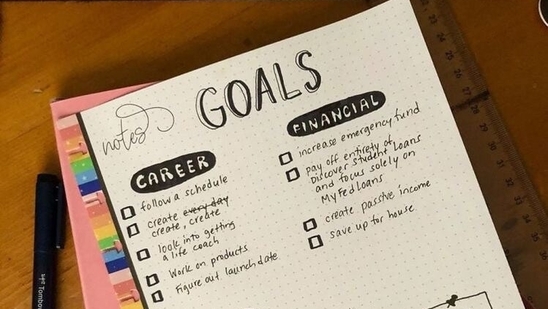 notes
GOALS
CAREER
follow a schedule
create every day
create, create
look into getting
a life coach
Work on products
Figure out launch date
FINANCIAL
increase emergency fund
pay off entirety of
Discover student loans
and focus solely on
MyFedLoans
create passive income
save up for house
Tombow